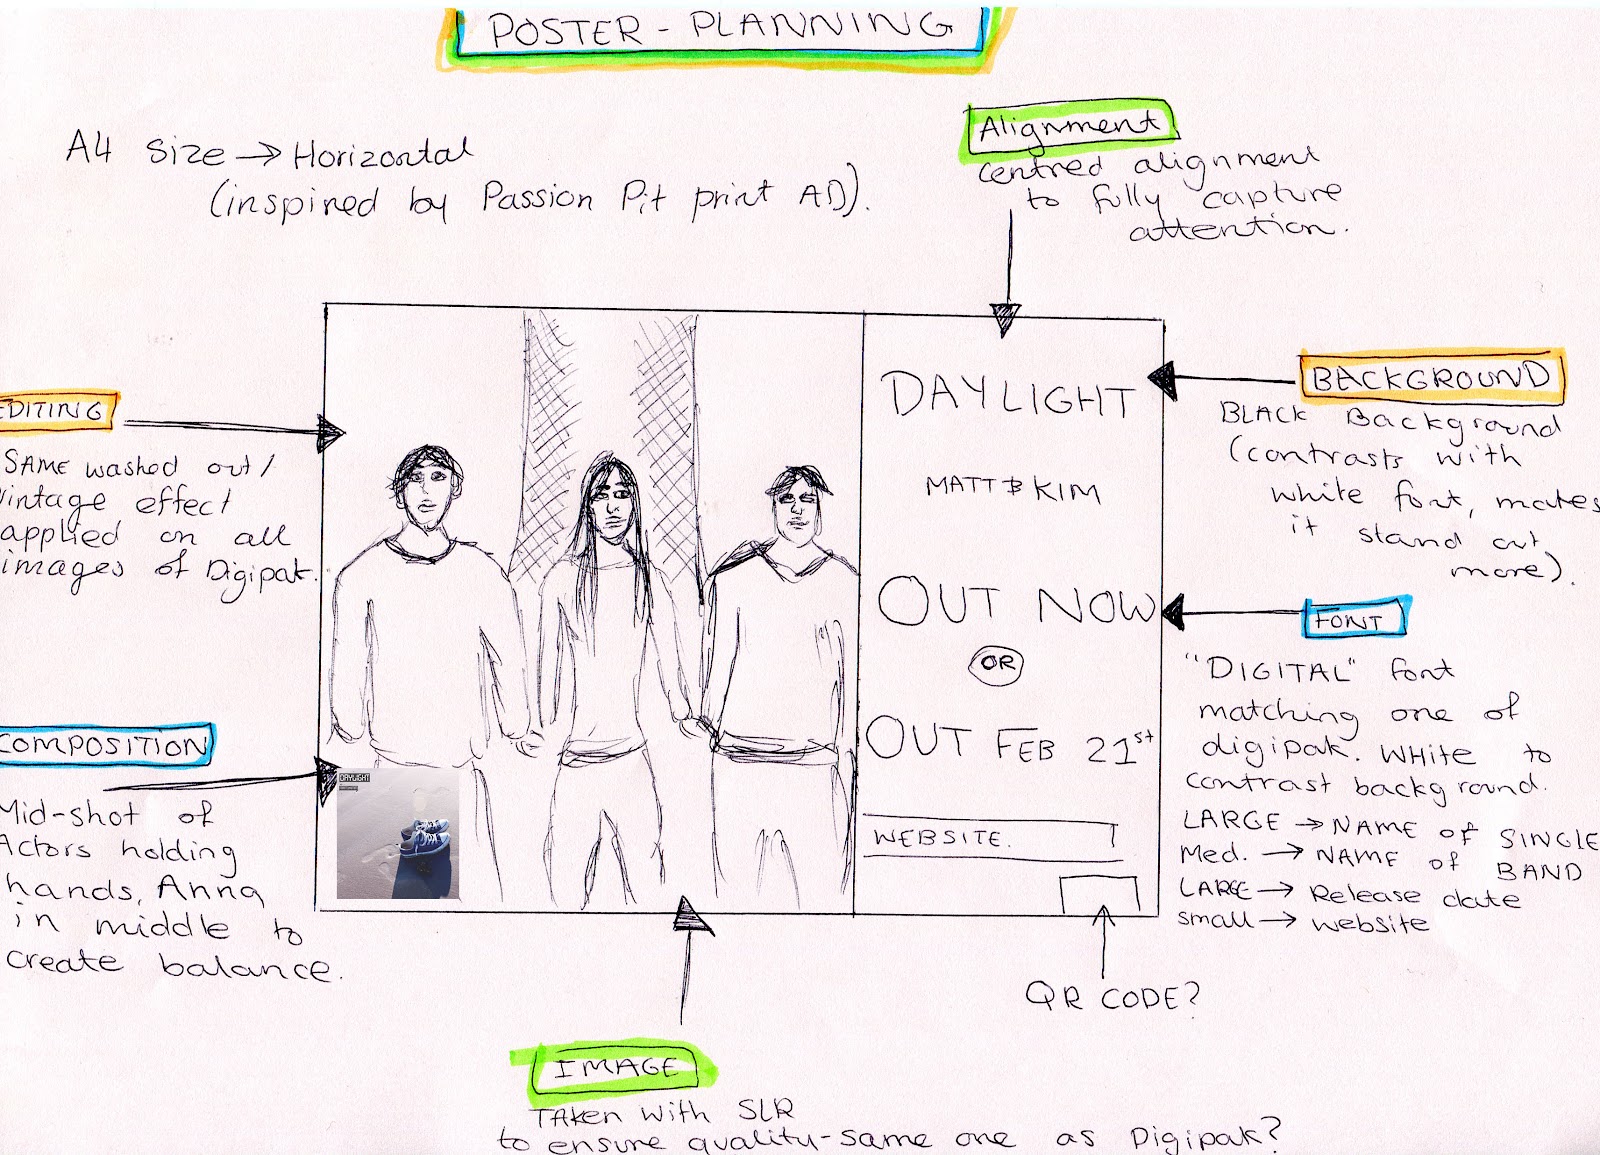 POSTER - PLANNING
A4 size → Horizontal
(inspired by Passion Pit print AD).
Alignment
centred alignment
to fully capture
attention.
EDITING
SAME washed out/
vintage effect
applied on all
images of Digipak.
COMPOSITION
Mid-shot of
Actors holding
hands, Anna
in middle to
create balance.
DAYLIGHT
DAYLIGHT
MATT & KIM
OUT NOW
OR
OUT FEB 21st
WEBSITE.
BACKGROUND
BLACK Background
(contrasts with
white font, makes
it stand out
more).
FONT
"DIGITAL" font
matching one of
digipak. WHite to
contrast background.
LARGE → NAME OF SINGLE
Med. → NAME OF BAND
LARGE → Release date
small → website
QR CODE?
IMAGE
TAKen with SLR
to ensure quality-same one as Digipak?